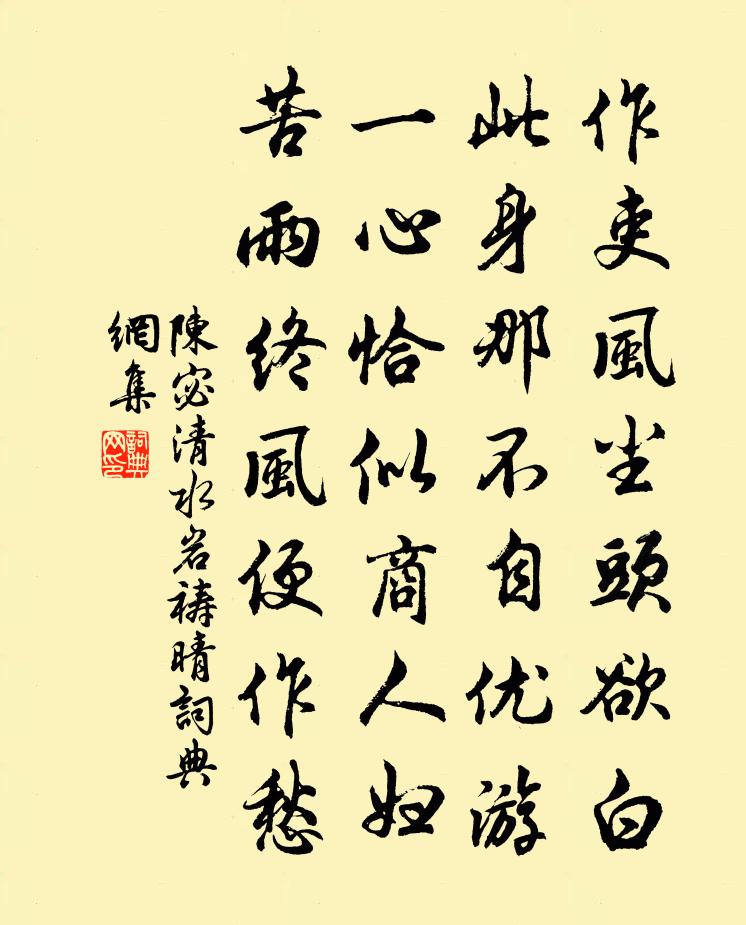 作吏風尘頭欲白
此身那不自优游
一心恰似商人妇
苦雨終風便作愁
陳宓清水岩祷晴詞典
網集
詞典
网印